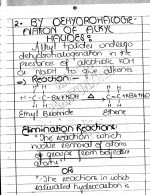 2. BY DEHYDROHALOGE-
NATION OF ALKYL
HALIDES:
Alkyl halides undergo
dehydrohalogenation in the
presence of alcoholic KOH
or NaOH to give alkenes
Reaction:
H H H H
H-C-C-Br+KOH → C=C +KBr+H2O
H H H H
Ethyl Bromide Ethene
Elimination Reactions
"The reaction which
involve removal of atoms
or groups from adjacent
atoms."
OR
"The reactions in which
saturated hydrocarbon is